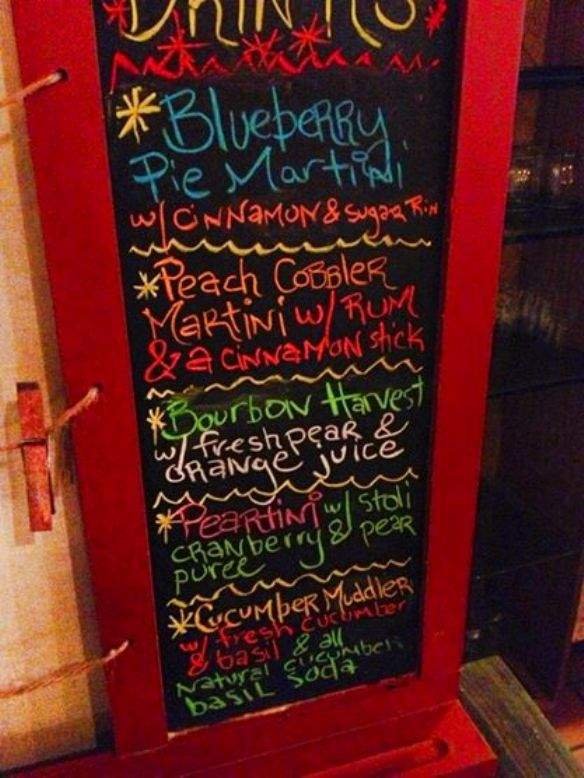 DRINKS
Blueberry
Pie Martini
w/ CINNAMON & Sugar Rim
Peach Cobbler
Martini w/ RUM
& a CINNAMON stick
Bourbon Harvest
w/ fresh pear &
ORANGE juice
Peartini w/ Stoli
CRANberry & pear
puree
Cucumber Muddler
w/ fresh cucumber
& basil & all
Natural cucumber
basil Soda